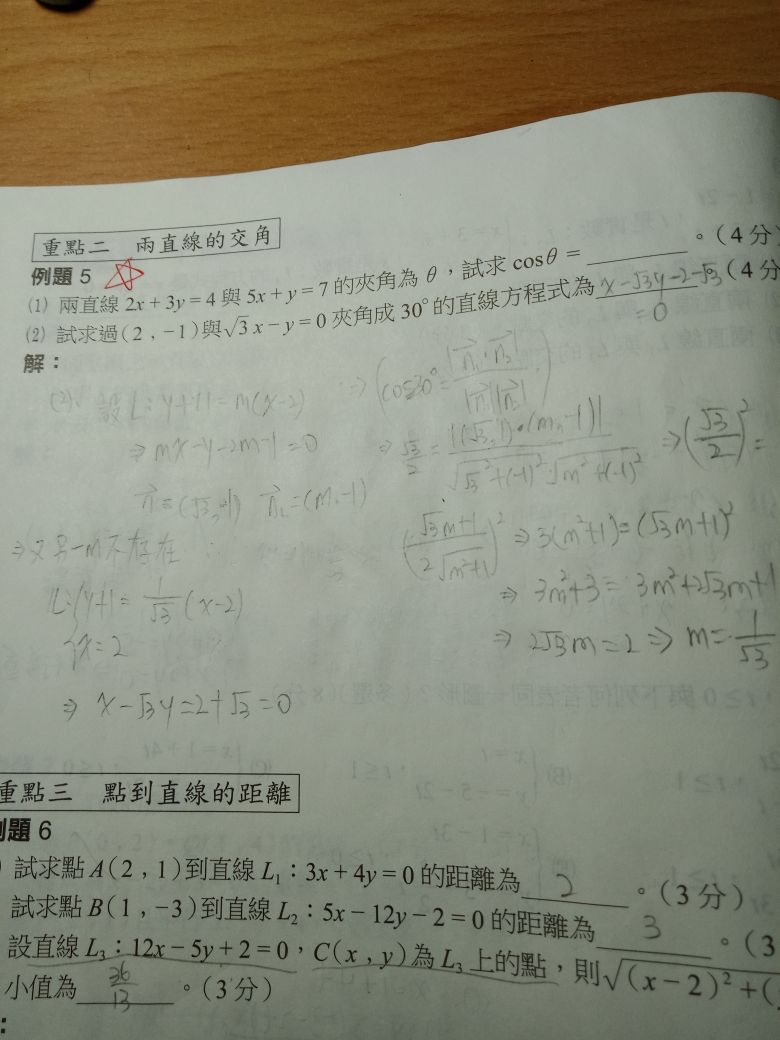 重點二 兩直線的交角
例題 5
(1) 兩直線 2x + 3y = 4 與 5x + y = 7 的夾角為 θ，試求 cosθ = ______。(4 分)
(2) 試求過(2 , −1)與√3 x − y = 0 夾角成 30° 的直線方程式為 x−√3y−2−√3 (4 分
= 0
解：
(2). 設 L: y+1 = m(x−2)
⇒ mx−y−2m−1=0
⇒ (cos30° = |n₁·n₂| / |n₁||n₂|)
⇒ √3/2 = |(√3,−1)·(m,−1)| / √(√3²+(−1)²)·√(m²+(−1)²) ⇒ (√3/2)² =
(√3m+1 / 2√(m²+1))² ⇒ 3(m²+1) = (√3m+1)²
⇒ 3m²+3 = 3m²+2√3m+1
⇒ 2√3m = 2 ⇒ m = 1/√3
⇒ 又另一m不存在
L: {y+1 = 1/√3 (x−2)
x = 2
⇒ x−√3y=2+√3=0
重點三 點到直線的距離
例題 6
試求點 A(2 , 1)到直線 L₁：3x + 4y = 0 的距離為 2 。(3 分)
試求點 B(1 , −3)到直線 L₂：5x − 12y − 2 = 0 的距離為 3 。(3
設直線 L₃：12x − 5y + 2 = 0，C(x , y)為 L₃ 上的點，則√(x − 2)² + (
小值為 26/13 。(3 分)
: